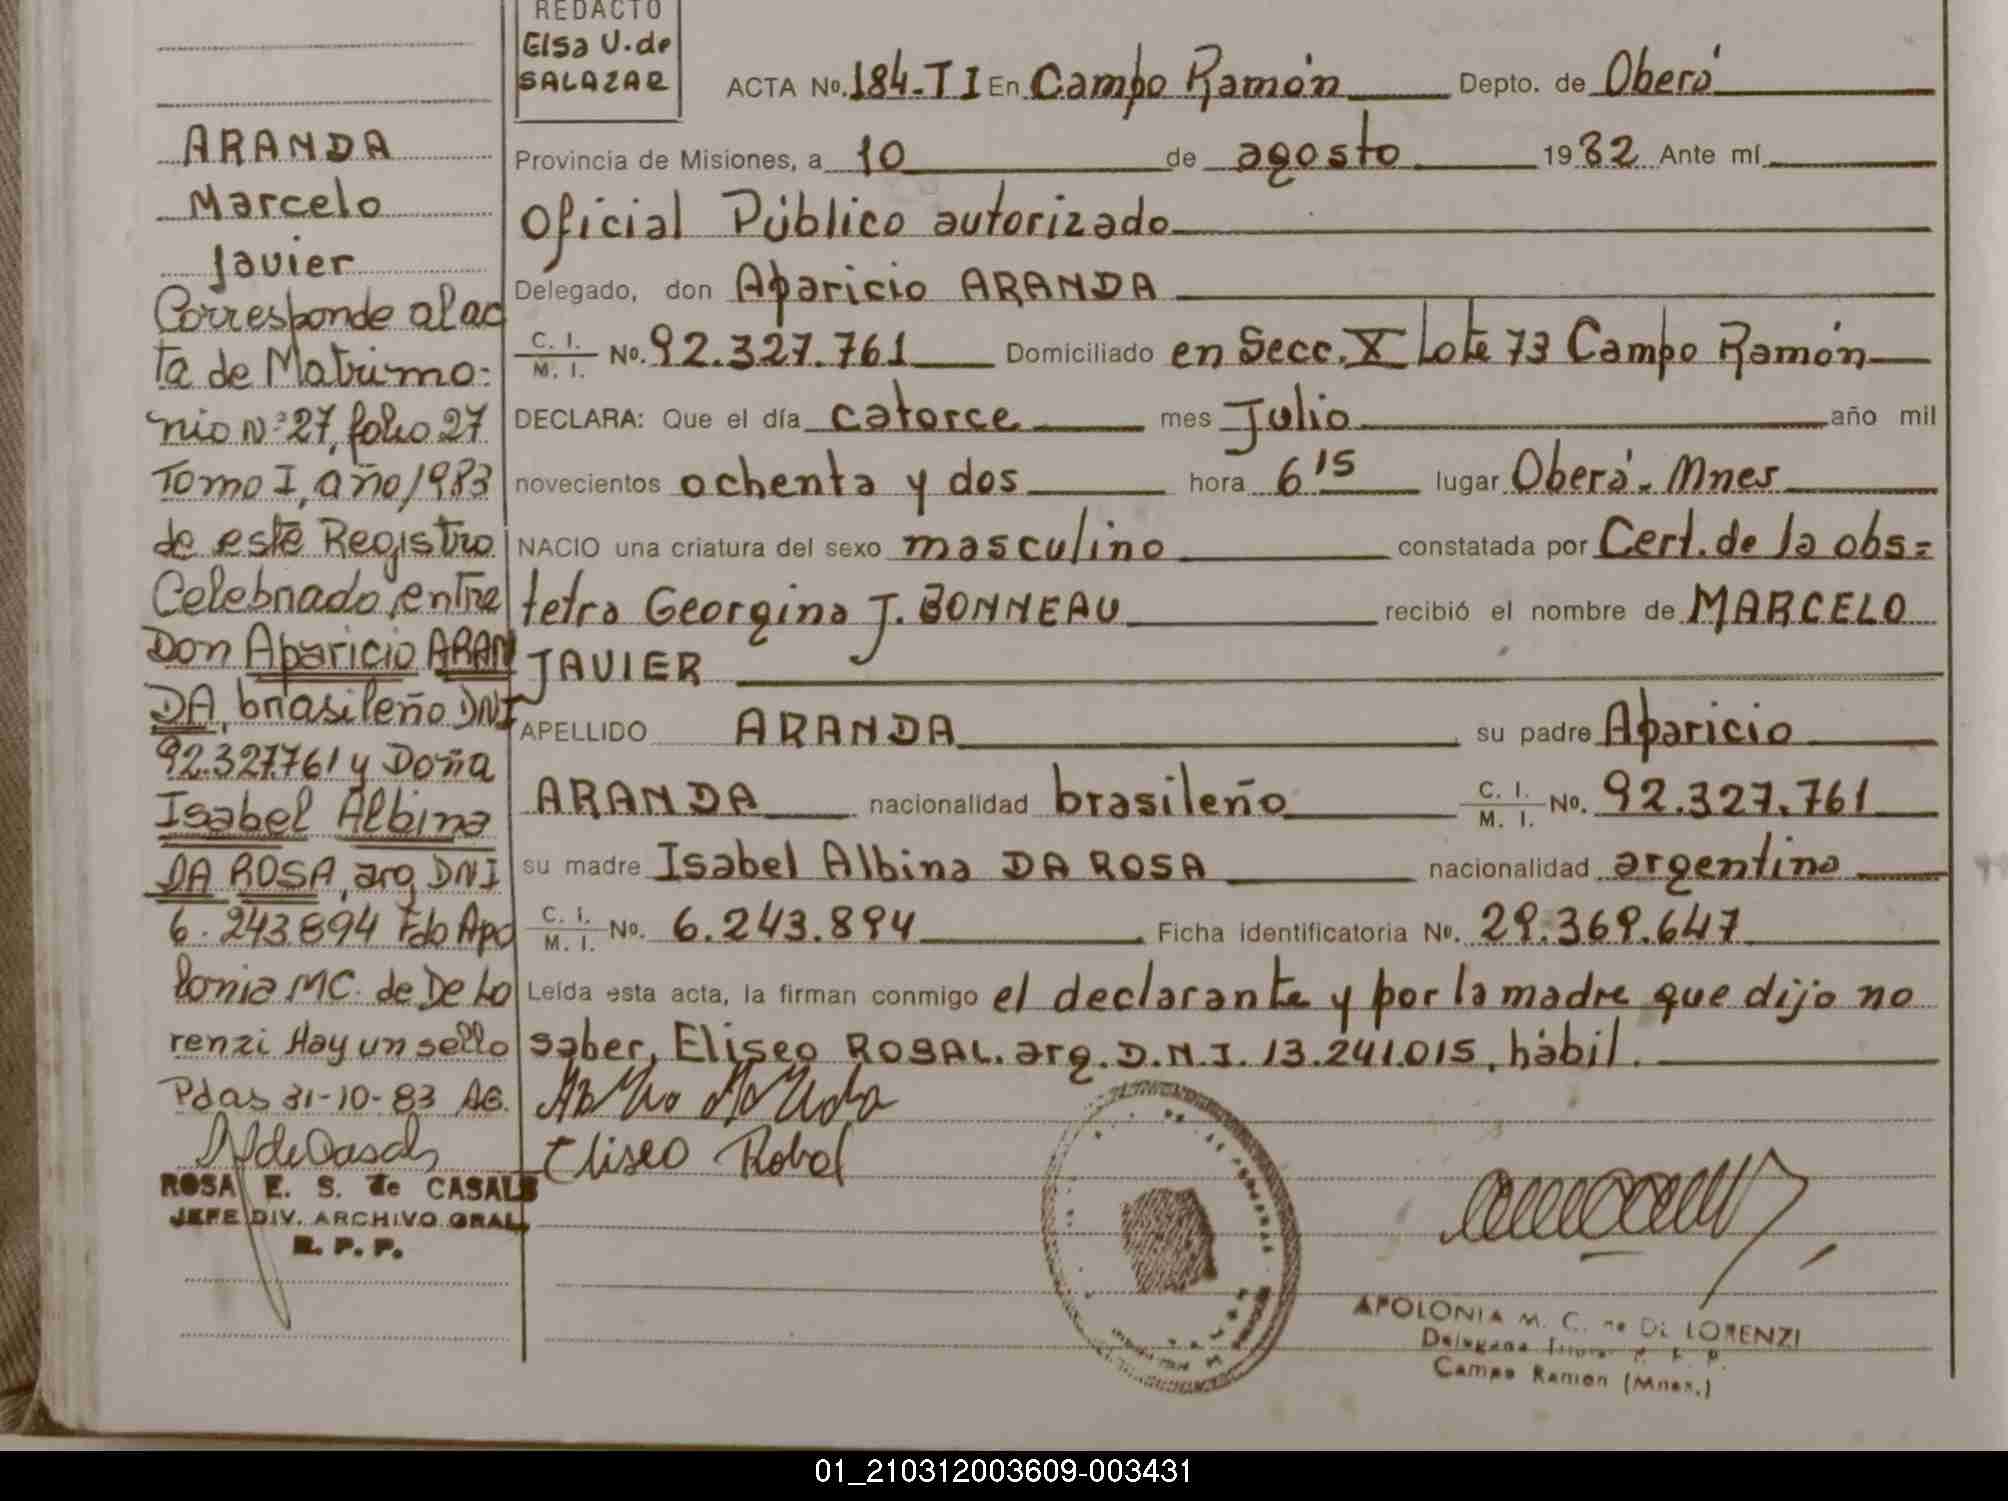 REDACTO
Elsa U. de
SALAZAR
ACTA No. 184-T I En Campo Ramón Depto. de Oberá
Provincia de Misiones, a 10 de agosto 1982 Ante mí
Oficial Público autorizado
Delegado, don Aparicio ARANDA
C. I.
M. I. No. 92.327.761 Domiciliado en Secc. X Lote 73 Campo Ramón
DECLARA: Que el día catorce mes Julio año mil
novecientos ochenta y dos hora 6 15 lugar Oberá - Mnes
NACIO una criatura del sexo masculino constatada por Cert. de la obs=
tetra Georgina J. BONNEAU recibió el nombre de MARCELO
JAVIER
APELLIDO ARANDA su padre Aparicio
ARANDA nacionalidad brasileño C. I.
M. I. No. 92.327.761
su madre Isabel Albina DA ROSA nacionalidad argentina
C. I.
M. I. No. 6.243.894 Ficha identificatoria No. 29.369.647
Leída esta acta, la firman conmigo el declarante y por la madre que dijo no
saber, Eliseo ROBAL. arg. D.N.I. 13.241.015, hábil.
Eliseo Robal
APOLONIA M. C. de DE LORENZI
Delegada
Campo Ramon (Mnes.)
ARANDA
Marcelo
Javier
Corresponde al ac
ta de Matrimo-
nio Nº 27, folio 27
Tomo I, año 1983
de este Registro
Celebrado, entre
Don Aparicio ARAN
DA, brasileño DNI
92.327.761 y Doña
Isabel Albina
DA ROSA, arg DNI
6.243.894 Fdo Apo
lonia MC. de De Lo
renzi Hay un sello
Pdas 31-10-83 AG.
ROSA E. S. de CASALS
JEFE DIV. ARCHIVO GRAL.
R. P. P.
01_210312003609-003431